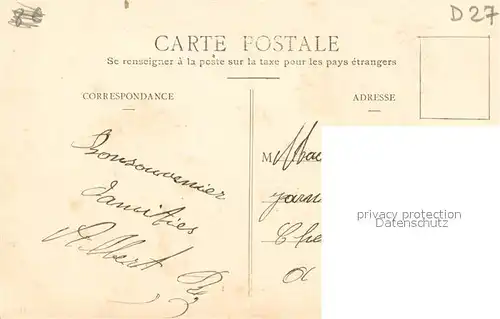 D27
CARTE POSTALE
Se renseigner à la poste sur la taxe pour les pays étrangers
CORRESPONDANCE
ADRESSE
Bonsouvenier
damities
Albert
M
privacy protection
Datenschutz